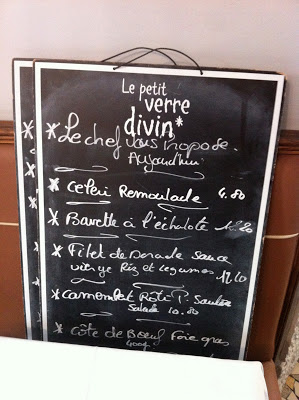 Le petit
verre
divin*
* Le chef vous propose
Aujourd'hui
* Celeri Remoulade 4.80
* Bavette à l'échalote
* Filet de Dorade Sauce
vierge Riz et Legumes 17.10
* Camembert Roti P. Sautées
Salade 10.80
* Côte de Boeuf Foie gras
400g